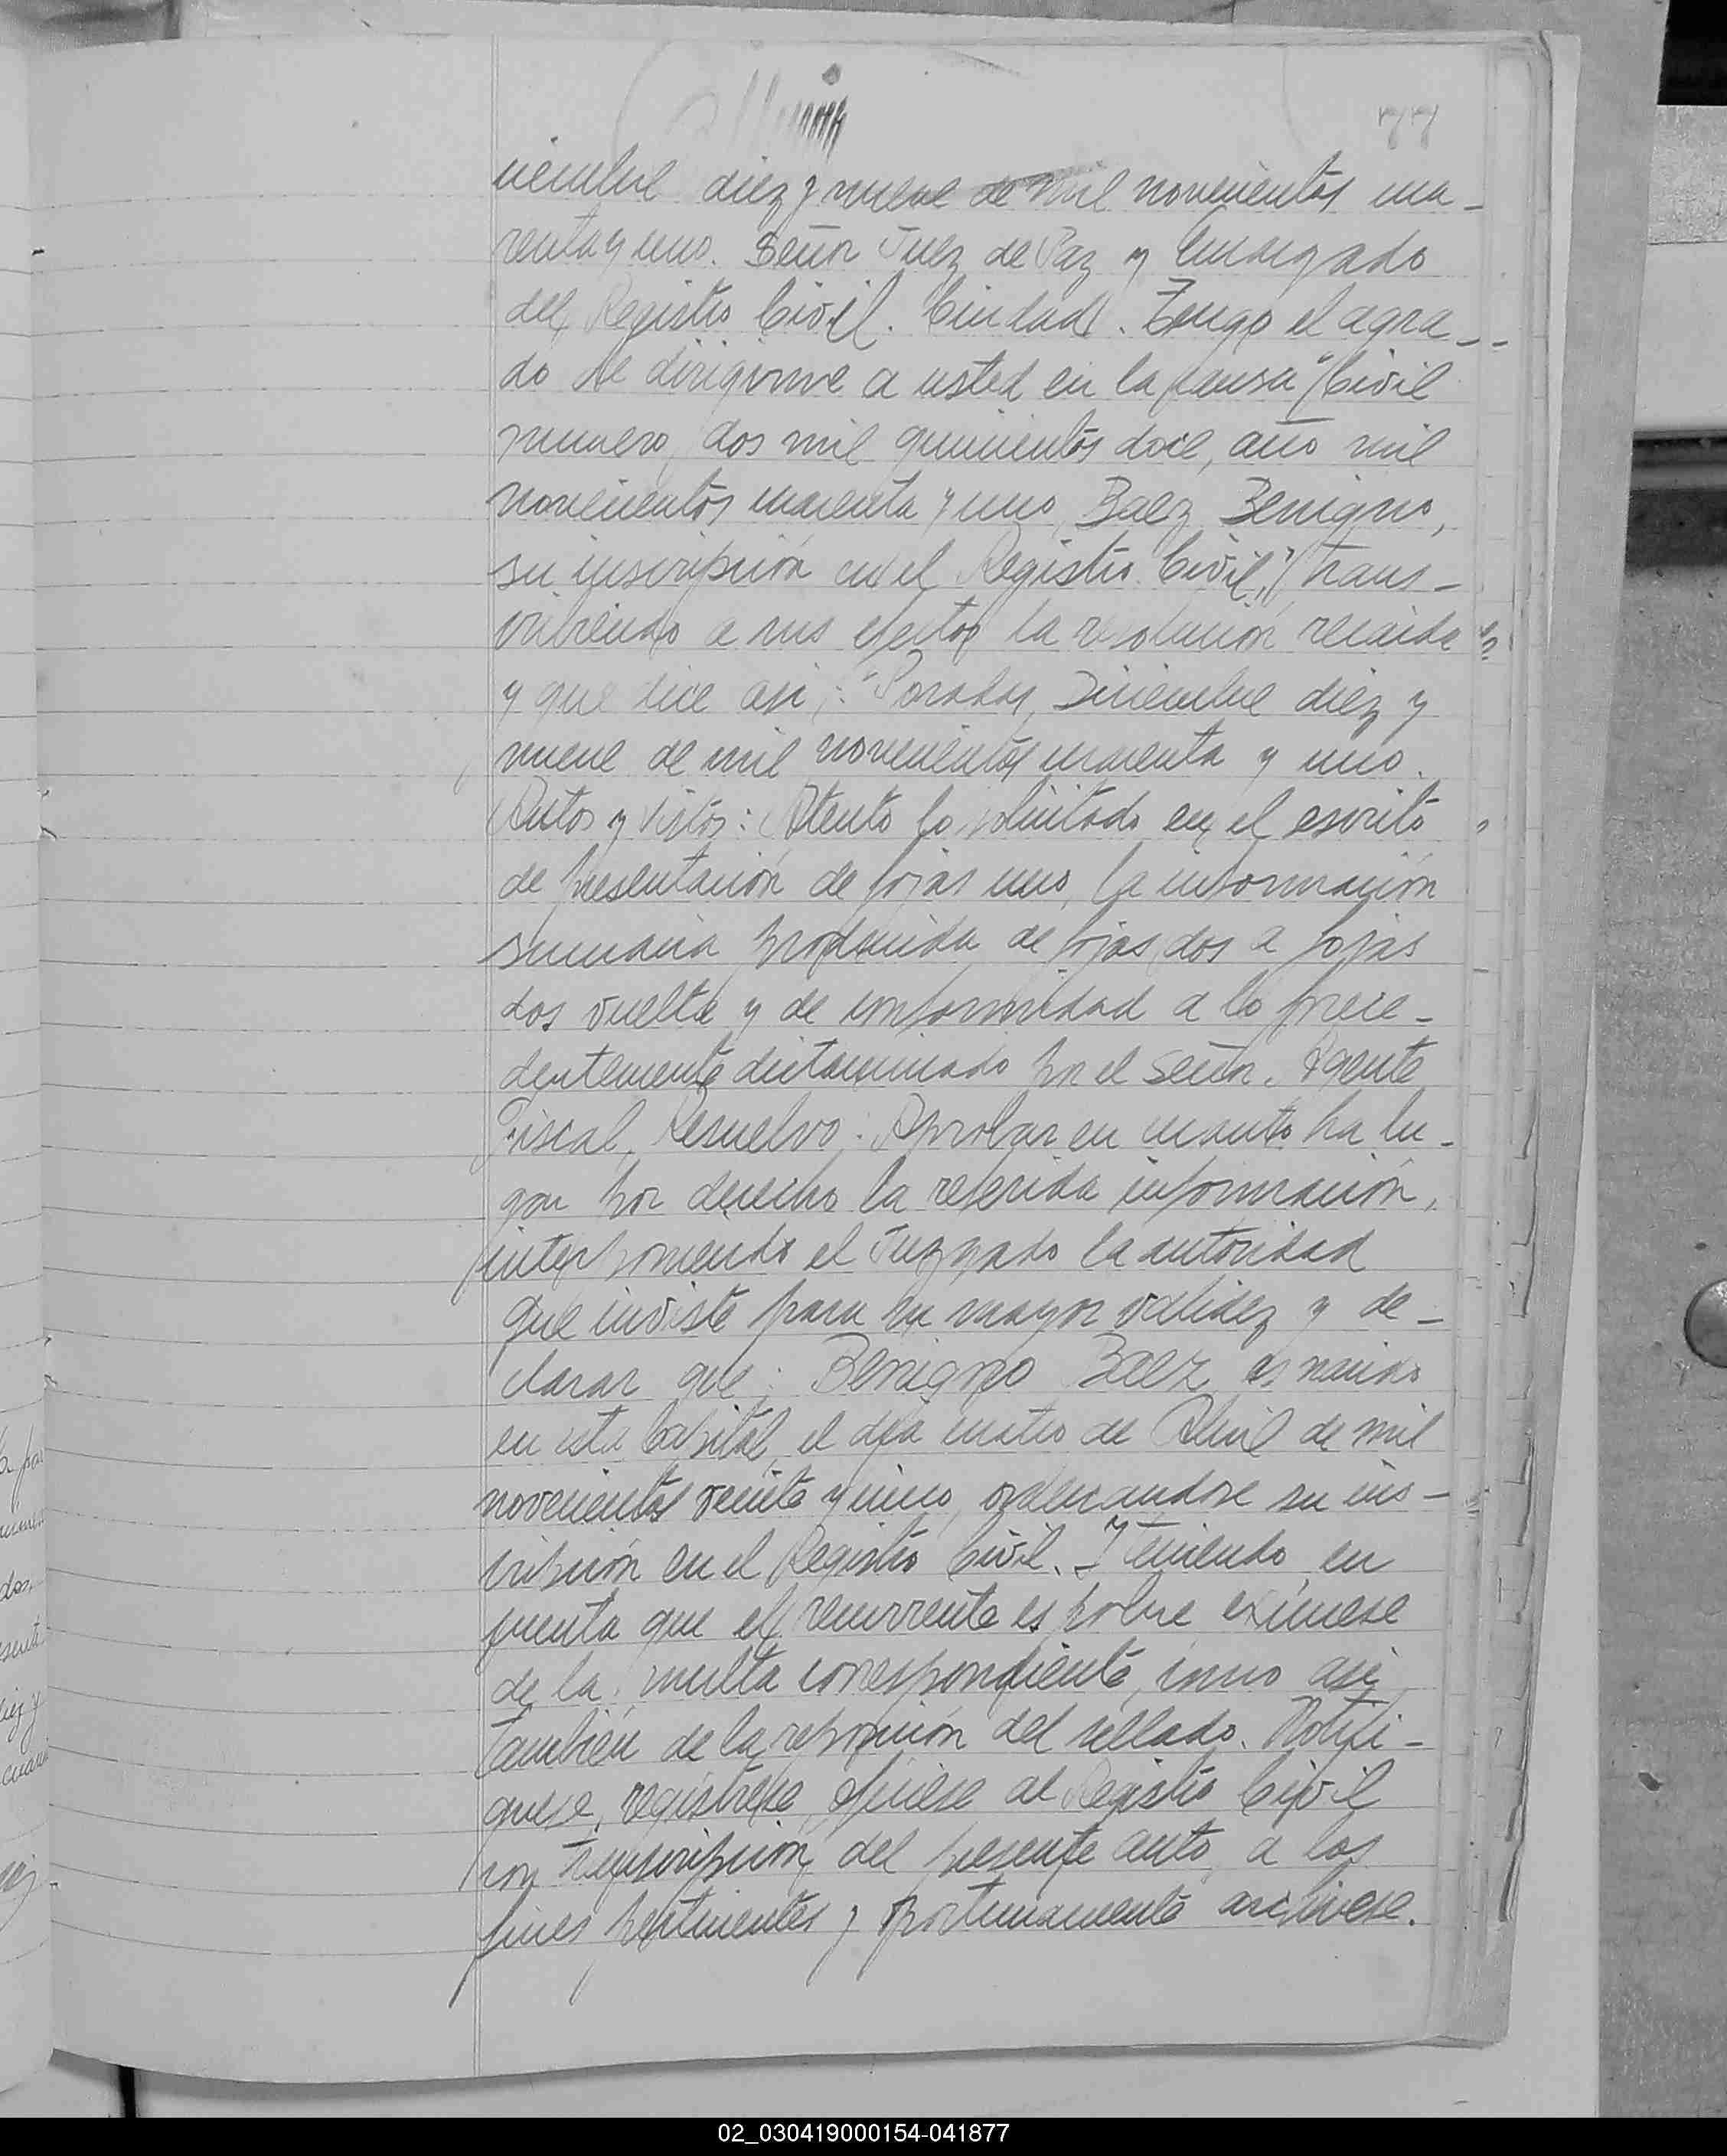 77
ciembre diez y nueve de mil novecientos cua-
renta y uno. Señor Juez de Paz y Encargado
del Registro Civil. Ciudad. Tengo el agra-
do de dirigirme a usted en la causa "Civil
numero, dos mil quinientos doce, año mil
novecientos cuarenta y uno, Baez Benigno,
su inscripción en el Registro Civil," trans-
cribiendo a sus efectos la resolución recaida
y que dice asi,: "Posadas, Diciembre diez y
nueve de mil novecientos cuarenta y uno.
Autos y Vistos: Atento lo solicitado en el escrito
de presentación de fojas uno, la información
sumaria producida de fojas dos a fojas
dos vuelta y de conformidad a lo prece-
dentemente dictaminado por el señor. Agente
Fiscal, Resuelvo: Aprobar en cuanto ha lu-
gar por derecho la referida información,
interponiendo el Juzgado la autoridad
que inviste para su mayor validez y de-
clarar que: Benigno Baez es nacido
en esta Capital, el dia cuatro de Abril de mil
novecientos veinte y cinco, ordenandose su ins-
cripción en el Registro Civil.- Y teniendo en
cuenta que el recurrente es pobre eximese
de la multa correspondiente, como asi
también de la reposición del sellado. Notifi-
quese, regístrese, ofíciese al Registro Civil
con transcripción del presente auto a los
fines pertinentes y oportunamente archivese.
02_030419000154-041877